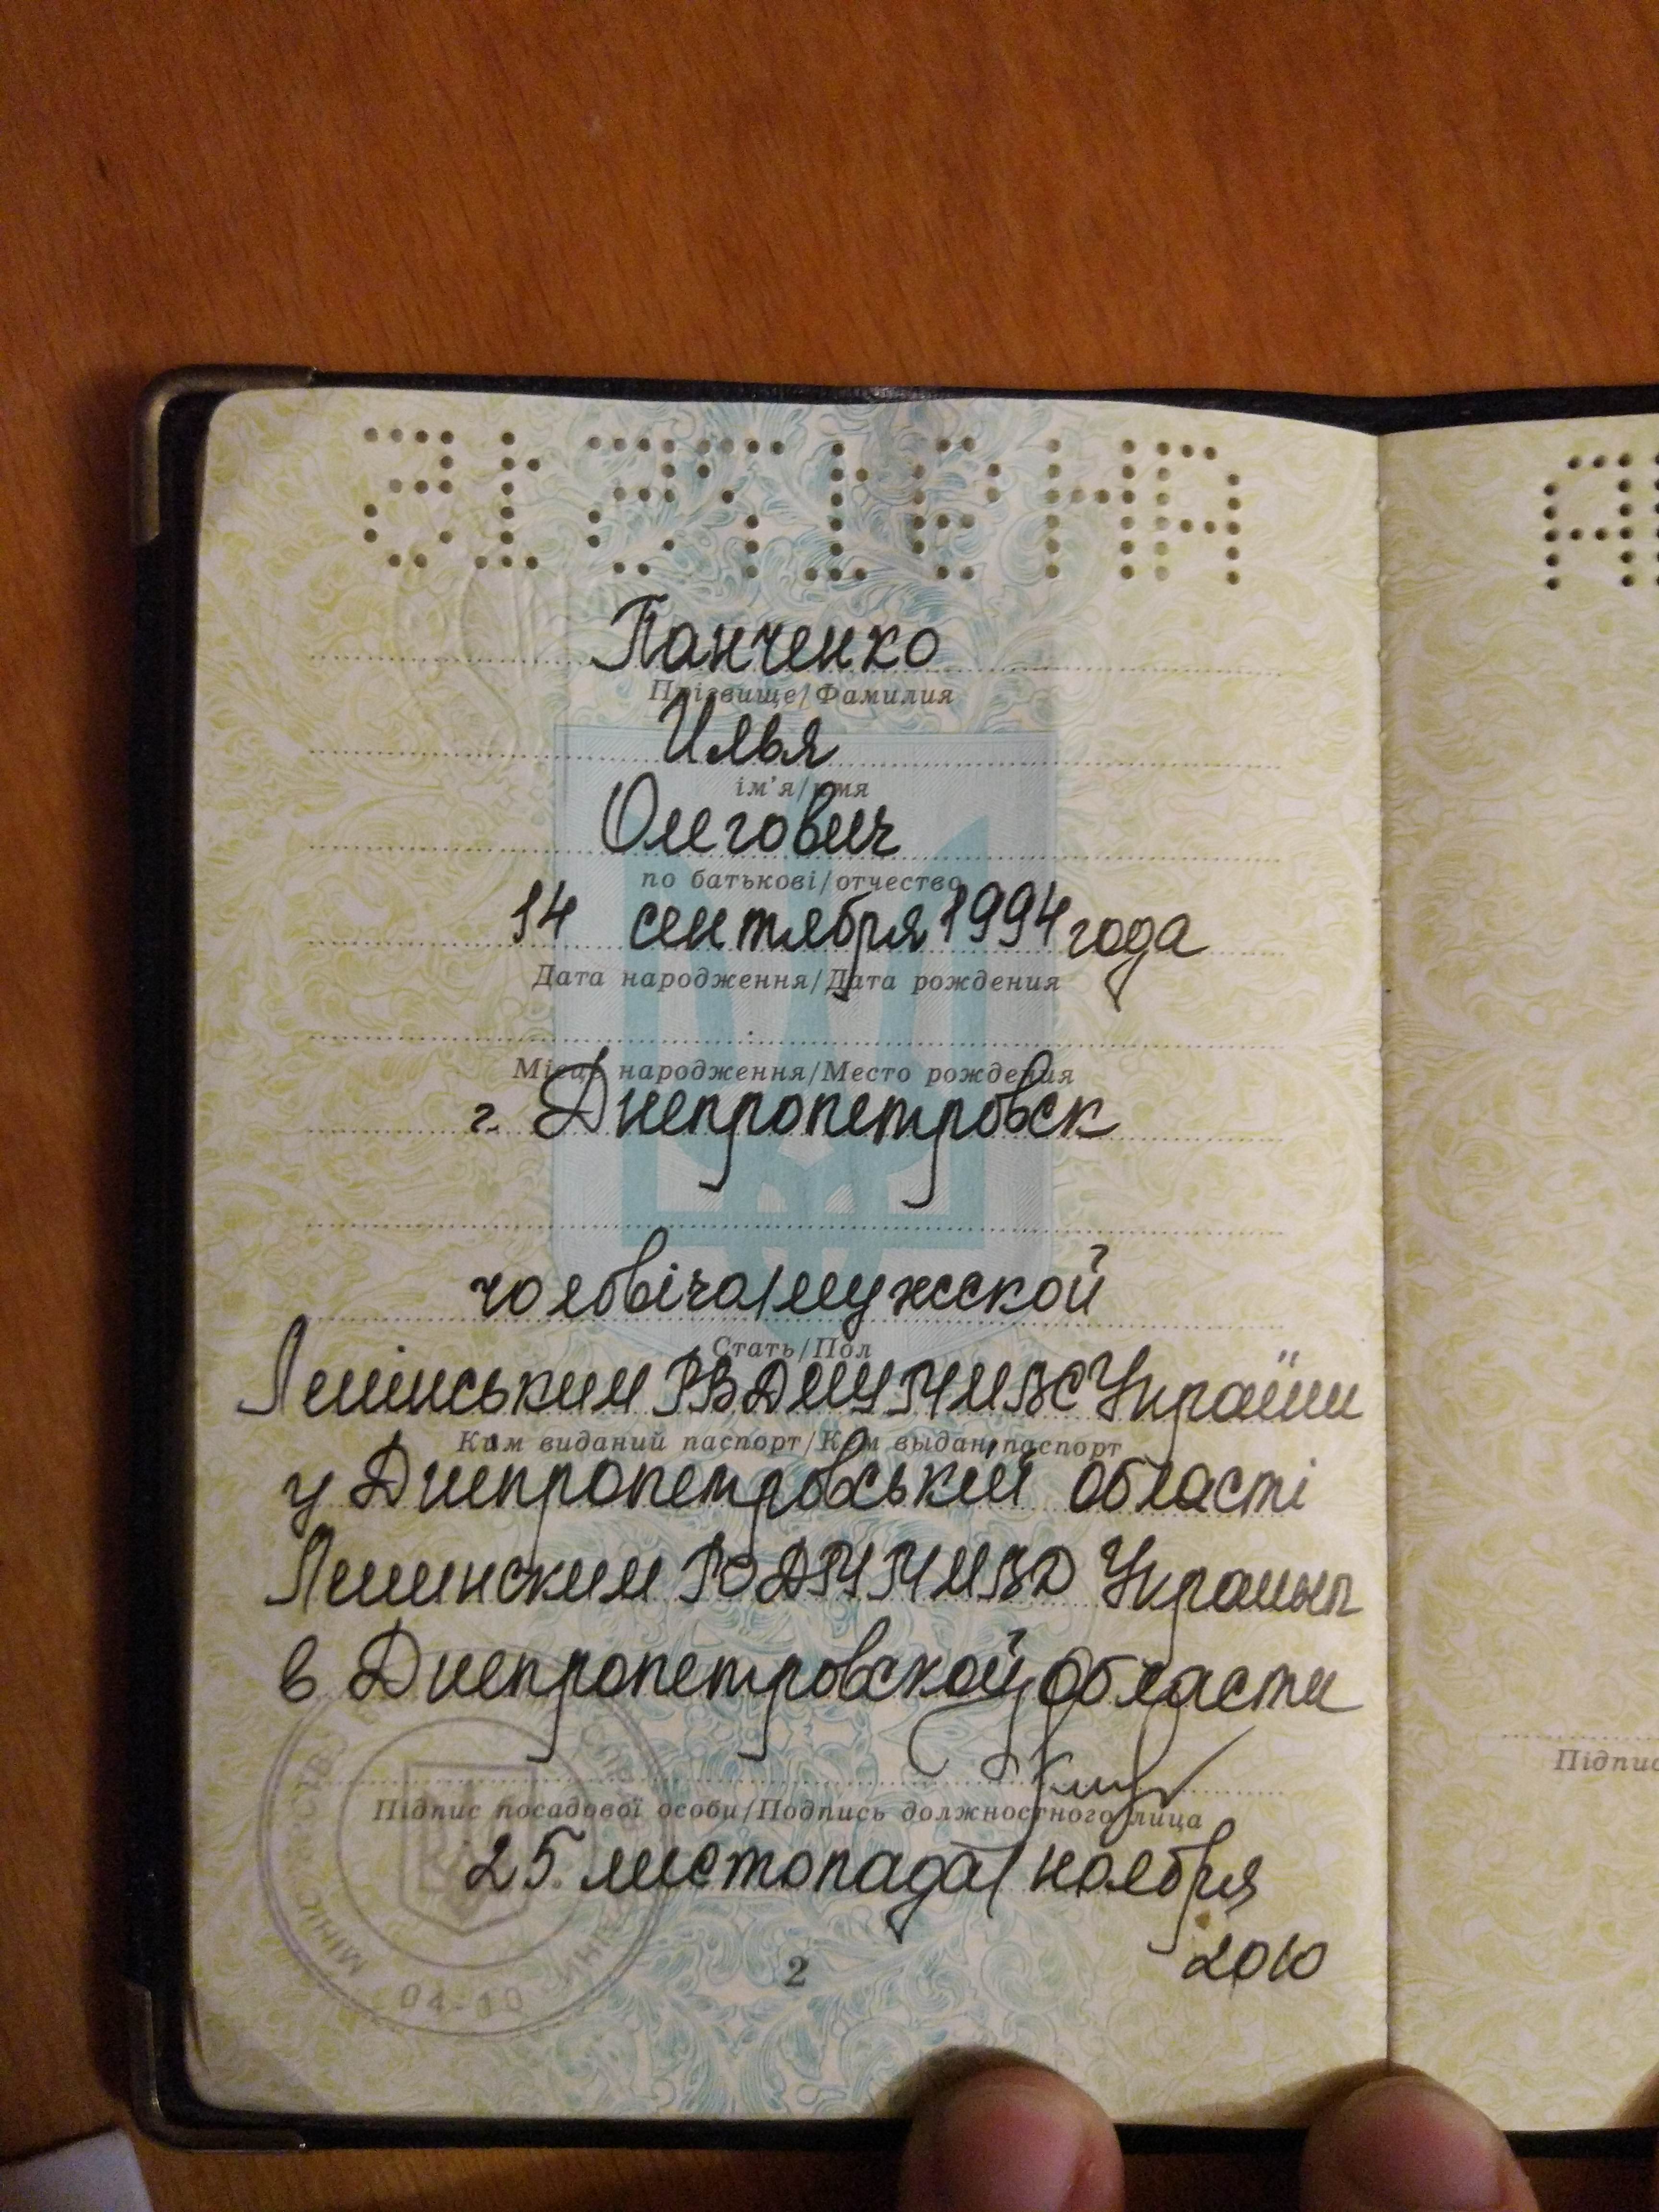 Панченко
Прізвище/Фамилия
Илья
ім'я/имя
Олегович
по батькові/отчество
14 сентября 1994 года
Дата народження/Дата рождения
Місце народження/Место рождения
г. Днепропетровск
чоловіча/мужской
Стать/Пол
Ленінським РВДМУГУМВС України
Ким виданий паспорт/Кем выдан паспорт
у Дніпропетровській області
Ленинским РОДГУГУМВД Украины
в Днепропетровской области
Підпис посадової особи/Подпись должностного лица
25 листопада/ ноября
2010
2
04-10
Підпис